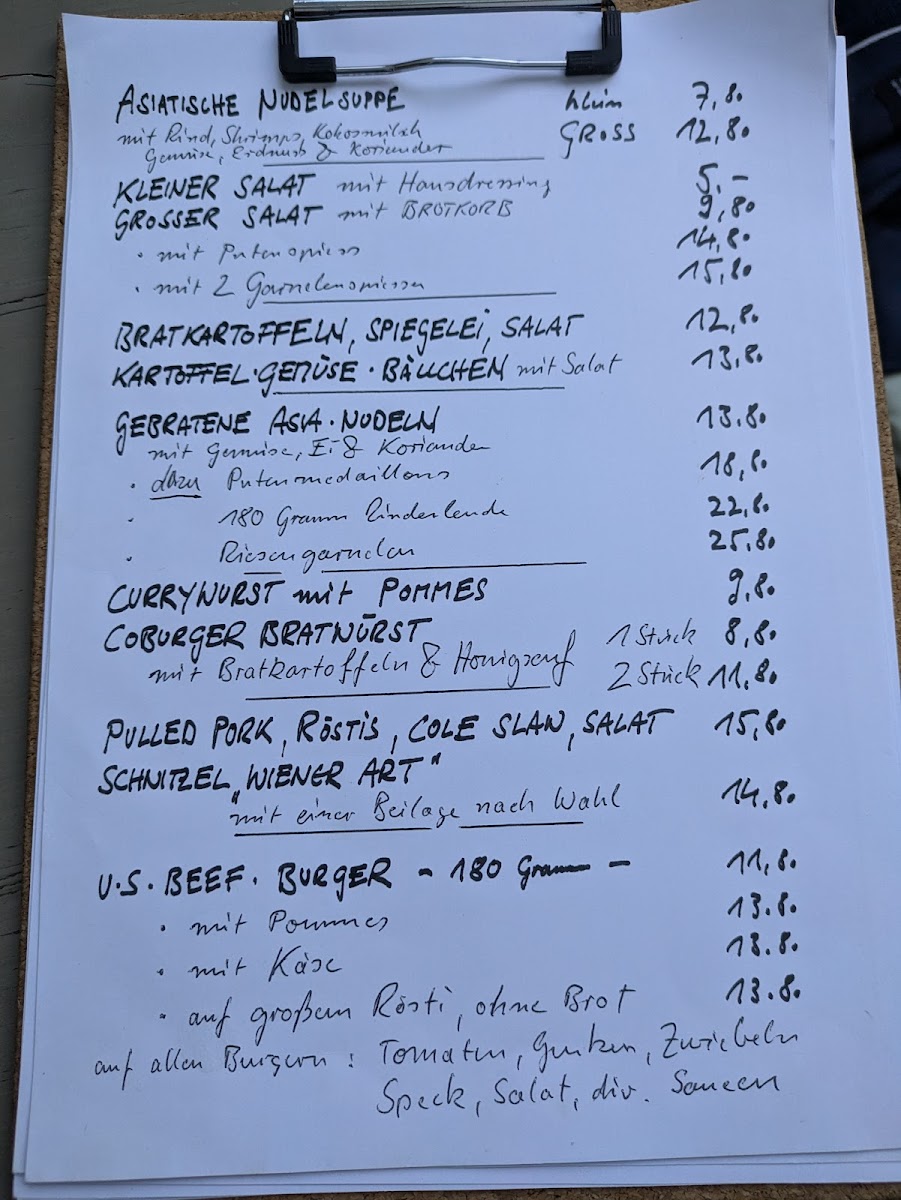 ASIATISCHE NUDELSUPPE klein 7,80
mit Rind, Shrimps, Kokosmilch GROSS 12,80
Gemüse, Erdnuss & Koriander
KLEINER SALAT mit Hausdressing 5,-
GROSSER SALAT mit BROTKORB 9,80
· mit Putenspiess 14,80
· mit 2 Garnelenspiessen 15,80
BRATKARTOFFELN, SPIEGELEi, SALAT 12,80
KARTOFFEL·GEMÜSE·BÄLLCHEN mit Salat 13,80
GEBRATENE ASIA·NUDELN 13.80
mit Gemüse, Ei & Koriander
· dazu Putenmedaillons 18,80
· 180 Gramm Rinderlende 22,80
· Riesengarnelen 25,80
CURRYWURST mit POMMES 9,80
COBURGER BRATWÜRST 1 Stück 8,80
mit Bratkartoffeln & Honigsenf 2 Stück 11,80
PULLED PORK, RÖSTIS, COLE SLAW, SALAT 15,80
SCHNITZEL „WIENER ART"
mit einer Beilage nach Wahl 14,80
U.S. BEEF·BURGER - 180 Gramm - 11,80
· mit Pommes 13.80
· mit Käse 13.80
· auf großem Rösti, ohne Brot 13.80
auf allen Burgern: Tomaten, Gurken, Zwiebeln
Speck, Salat, div. Saucen